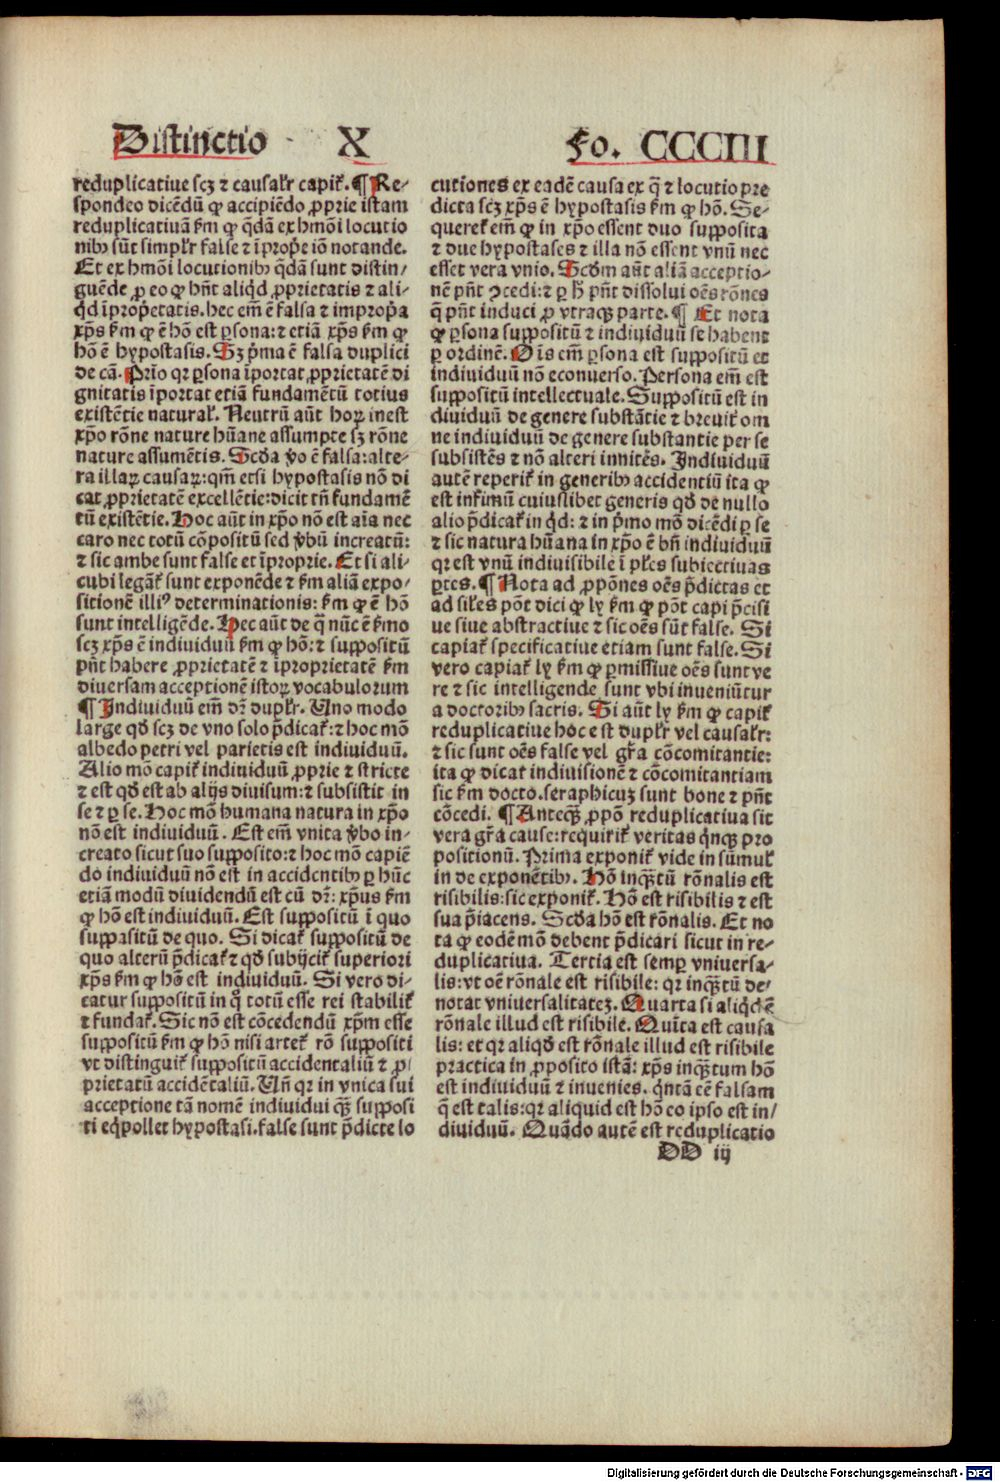 Distinctio X Fo. CCCIII
reduplicatiue scʒ ⁊ causalr̃ capit̃. ¶ Re⸗
spondeo dicẽdũ ꝙ accipiẽdo ꝓprie istam
reduplicatiuã ẜm ꝙ q̃dã ex hmõi locutio
nibꝰ sũt simplr̃ false ⁊ ĩprop̃e iõ notande.
Et ex hmõi locutionibꝰ q̃dã sunt distin/
guẽde ꝓ eo ꝙ hñt aliq̃d ꝓprietatis ⁊ ali⸗
q̃d ĩprop̃etatis. hec em̃ ẽ falsa ⁊ improp̃a
xp̃s ẜm ꝙ ẽ hõ est ꝑsona: ⁊ etiã xp̃s ẜm ꝙ
hõ ẽ hypostasis. Sʒ p̃ma ẽ falsa duplici
de cã. Prĩo qꝛ ꝑsona ĩportat ꝓprietatẽ di
gnitatis ĩportat etiã fundamẽtũ totius
existẽtie natural̃. Neutrũ aũt hoꝝ inest
xp̃o rõne nature hũane assumpte sʒ rõne
nature assumẽtis. Scd̃a ṽo ẽ falsa: alte⸗
ra illaꝝ causaꝝ: qm̃ etsi hypostasis nõ di
cat ꝓprietatẽ excellẽtie: dicit tñ fundamẽ
tũ existẽtie. Hoc aũt in xp̃o nõ est aĩa nec
caro nec totũ cõpositũ sed ṽbũ increatũ:
⁊ sic ambe sunt false et ĩproprie. Et si ali⸗
cubi legãt̃ sunt exponẽde ⁊ ẜm aliã expo/
sitionẽ illiꝰ determinationis: ẜm ꝙ ẽ hõ
sunt intelligẽde. Hec aũt de q̃ nũc ẽ ẜmo
scʒ xp̃s ẽ indiuiduũ ẜm ꝙ hõ: ⁊ suppositũ
pñt habere ꝓprietatẽ ⁊ ĩproprietatẽ ẜm
diuersam acceptionẽ istoꝝ vocabulorum
¶ Indiuiduũ em̃ dr̃ duplr̃. Uno modo
large qd̃ scʒ de vno solo p̃dicat̃: ⁊ hoc mõ
albedo petri vel parietis est indiuiduũ.
Alio mõ capit̃ indiuiduũ ꝓprie ⁊ stricte
⁊ est qd̃ est ab alijs diuisum: ⁊ subsistit in
se ⁊ ꝑ se. Hoc mõ humana natura in xp̃o
nõ est indiuiduũ. Est em̃ vnita ṽbo in⸗
creato sicut suo supposito: ⁊ hoc mõ capiẽ
do indiuiduũ nõ est in accidentibꝰ ꝑ hũc
etiã modũ diuidendũ est cũ dr̃: xp̃us ẜm
ꝙ hõ est indiuiduũ. Est suppositũ ĩ quo
suppasitũ de quo. Si dicat̃ suppositũ de
quo alterũ p̃dicat̃ ⁊ qd̃ subijcit̃ superiori
xp̃s ẜm ꝙ hõ est indiuiduũ. Si vero di⸗
catur suppositũ in q̃ totũ esse rei stabilit̃
⁊ fundat̃. Sic nõ est cõcedendũ xp̃m esse
suppositũ ẜm ꝙ hõ nisi artet̃ rõ suppositi
vt distinguit̃ suppositũ accidentaliũ ⁊ ꝓ/
prietatũ accidẽtaliũ. Uñ qꝛ in vnica sui
acceptione tã nomẽ indiuidui q̃ʒ supposi
ti eq̃pollet hypostasi. false sunt p̃dicte lo
cutiones ex eadẽ causa ex q̃ ⁊ locutio pre
dicta scʒ xp̃s ẽ hypostasis ẜm ꝙ hõ. Se⸗
queret̃ em̃ ꝙ in xp̃o essent duo supposita
⁊ due hypostases ⁊ illa nõ essent vnũ nec
esset vera vnio. Scd̃m aũt aliã acceptio⸗
nẽ pñt ꝯcedi: ⁊ ꝑ h̃ pñt dissolui oẽs rõnes
q̃ pñt induci ꝓ vtraqꝫ parte. ¶ Et nota
ꝙ ꝑsona suppositũ ⁊ indiuiduũ se habent
ꝑ ordinẽ. Oĩs em̃ ꝑsona est suppositũ et
indiuiduũ nõ econuerso. Persona em̃ est
suppositũ intellectuale. Suppositũ est in
diuiduũ de genere substãtie ⁊ breuit̃ om
ne indiuiduũ de genere substantie per se
subsistẽs ⁊ nõ alteri innitẽs. Indiuiduũ
autẽ reperit̃ in generibꝰ accidentiũ ita ꝙ
est infimũ cuiuslibet generis qd̃ de nullo
alio p̃dicat̃ in q̃d: ⁊ in p̃mo mõ dicẽdi ꝑ se
⁊ sic natura hũana in xp̃o ẽ bñ indiuiduũ
qꝛ est vnũ indiuisibile ĩ ptes subiectiuas
ꝑtes. ¶ Nota ad ꝓpõnes oẽs p̃dictas et
ad siles põt dici ꝙ ly ẜm ꝙ põt capi p̃cisi
ue siue abstractiue ⁊ sic oẽs sũt false. Si
capiat̃ specificatiue etiam sunt false. Si
vero capiat̃ ly ẜm ꝙ ꝑmissiue oẽs sunt ve
re ⁊ sic intelligende sunt vbi inueniũtur
a doctoribꝰ sacris. Si aũt ly ẜm ꝙ capit̃
reduplicatiue hoc est duplr̃ vel causalr̃:
⁊ sic sunt oẽs false vel gr̃a cõcomitantie:
ita ꝙ dicat indiuisionẽ ⁊ cõcomitantiam
sic ẜm docto. seraphicuʒ sunt bone ⁊ pñt
cõcedi. ¶ Anteq̃ʒ ꝓpõ reduplicatiua sit
vera gr̃a cause: requirit̃ veritas q̃nqꝫ pro
positionũ. Prima exponit̃ vide in sũmul̃
in de exponẽtibꝰ. Hõ inq̃ʒtũ rõnalis est
risibilis: sic exponit̃. Hõ est risibilis ⁊ est
sua p̃iacens. Scd̃a hõ est rõnalis. Et no
ta ꝙ eodẽ mõ debent p̃dicari sicut in re⸗
duplicatiua. Tertia est semꝑ vniuersa⸗
lis: vt oẽ rõnale est risibile: qꝛ inq̃ʒtũ de⸗
notat vniuersalitateʒ. Quarta si aliq̃d ẽ
rõnale illud est risibile. Quĩta est causa
lis: et qꝛ aliqd̃ est rõnale illud est risibile
practica in ꝓposito istã: xp̃s inq̃ʒtum hõ
est indiuiduũ ⁊ inuenies. q̃ntã eẽ falsam
q̃ est talis: qꝛ aliquid est hõ eo ipso est in/
diuiduũ. Quãdo autẽ est reduplicatio
DD iij
Digitalisierung gefördert durch die Deutsche Forschungsgemeinschaft - DFG